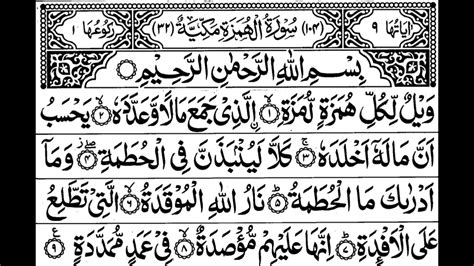 اٰیَاتُهَا ۹ (۱۰۴) سُوْرَةُ الْهُمَزَةِ مَكِّیَّةٌ (۳۲) رُكُوْعُهَا ۱
بِسْمِ اللّٰهِ الرَّحْمٰنِ الرَّحِیْمِ
وَیْلٌ لِّكُلِّ هُمَزَةٍ لُّمَزَةِ ۙ﴿۱﴾ الَّذِیْ جَمَعَ مَالًا وَّعَدَّدَهٗ ۙ﴿۲﴾ یَحْسَبُ
اَنَّ مَالَهٗۤ اَخْلَدَهٗ ۚ﴿۳﴾ كَلَّا لَیُنْۢبَذَنَّ فِی الْحُطَمَةِ ۖ﴿۴﴾ وَمَاۤ
اَدْرٰىكَ مَا الْحُطَمَةُ ؕ﴿۵﴾ نَارُ اللّٰهِ الْمُوْقَدَةُ ۙ﴿۶﴾ الَّتِیْ تَطَّلِعُ
عَلَی الْاَفْـِٕدَةِ ؕ﴿۷﴾ اِنَّهَا عَلَیْهِمْ مُّؤْصَدَةٌ ۙ﴿۸﴾ فِیْ عَمَدٍ مُّمَدَّدَةٍ ﴿۹﴾